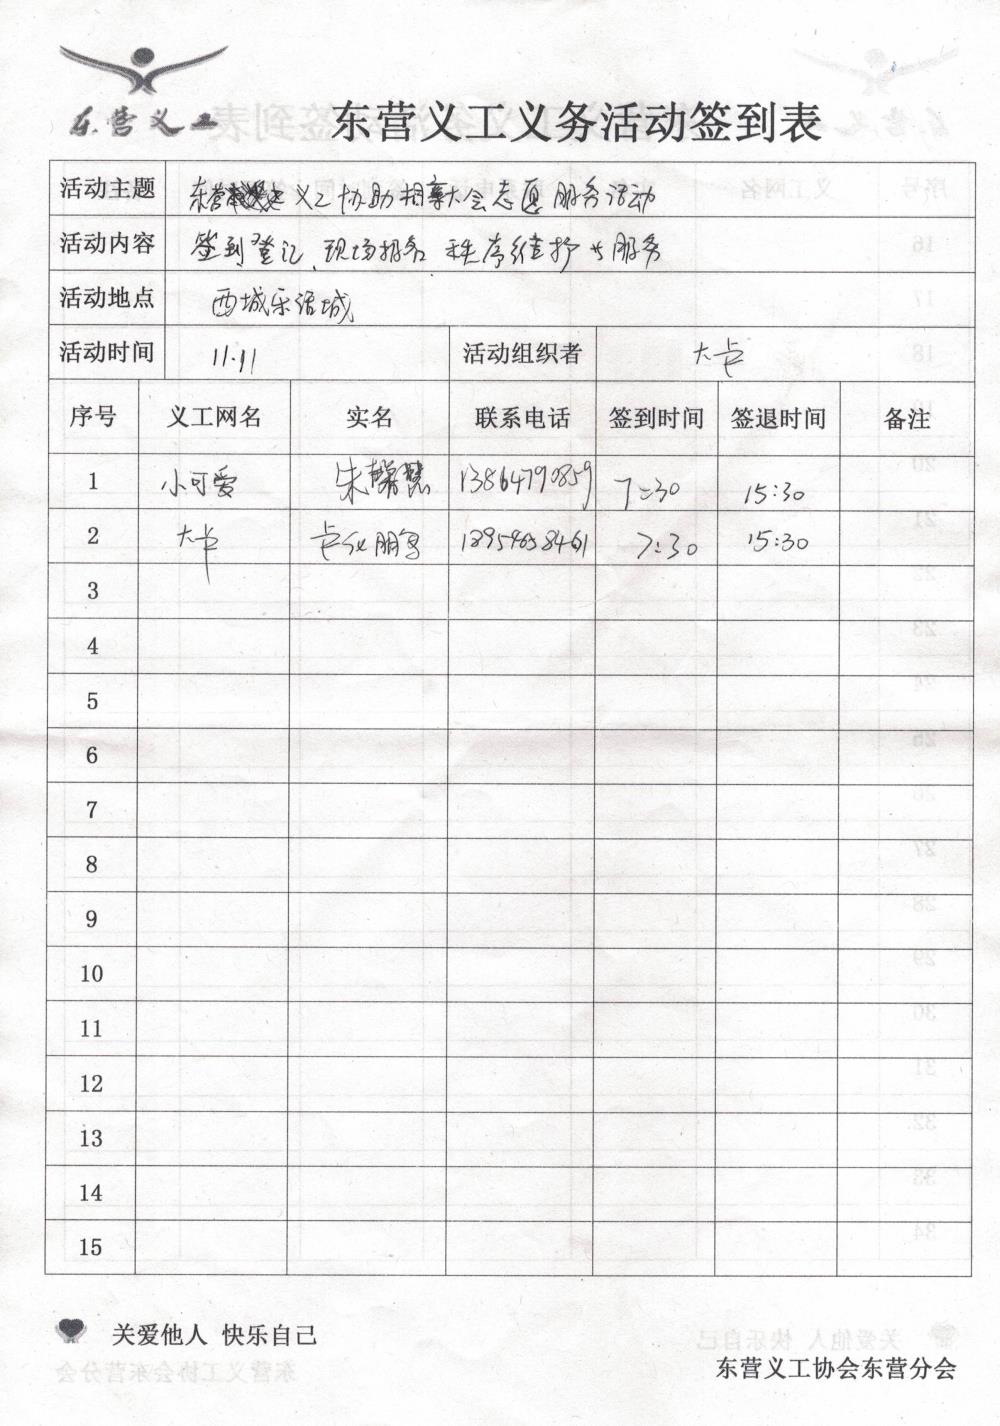 东营义工
东营义工义务活动签到表
活动主题 东营义工协助相亲大会志愿服务活动
活动内容 签到登记、现场报名 秩序维护与服务
活动地点 西城乐活城
活动时间 11.11 活动组织者 大卡
序号 义工网名 实名 联系电话 签到时间 签退时间 备注
1 小可爱 朱馨慧 13864790859 7:30 15:30
2 大卡 7:30 15:30
3
4
5
6
7
8
9
10
11
12
13
14
15
关爱他人 快乐自己
东营义工协会东营分会